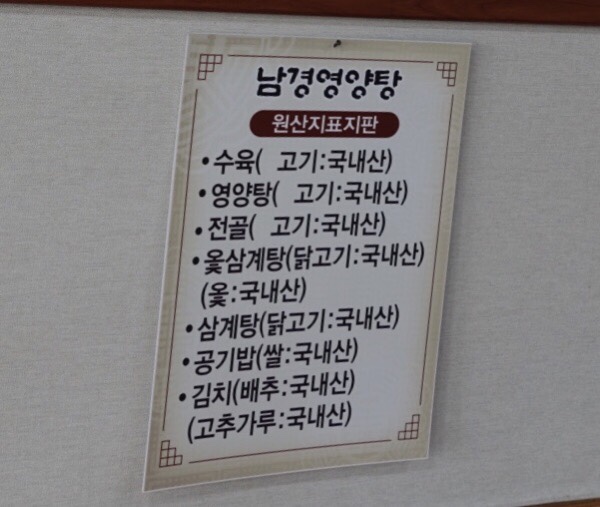 남경영양탕
원산지표지판
•수육( 고기:국내산)
•영양탕( 고기:국내산)
•전골( 고기:국내산)
•옻삼계탕(닭고기:국내산)
(옻:국내산)
•삼계탕(닭고기:국내산)
•공기밥(쌀:국내산)
•김치(배추:국내산)
(고추가루:국내산)